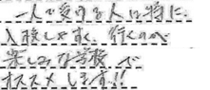 一人で受ける人は特に、
入校しやすく、行くのが
楽しみな学校で
オススメします!!